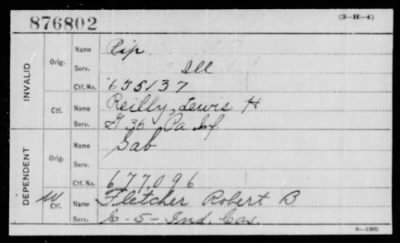 876802 (3-H-4)
INVALID
Orig. Name Rip
Serv. Ill
Ctf. No. 635137
Ctf. Name Reilly, Lewis H
Serv. G 36 Pa Inf
DEPENDENT
Orig. Name Sab
Serv.
Ctf. No. 677,096
W Ctf. Name Fletcher Robert B
Serv. - 5 - Ind. Cav.
6-1305